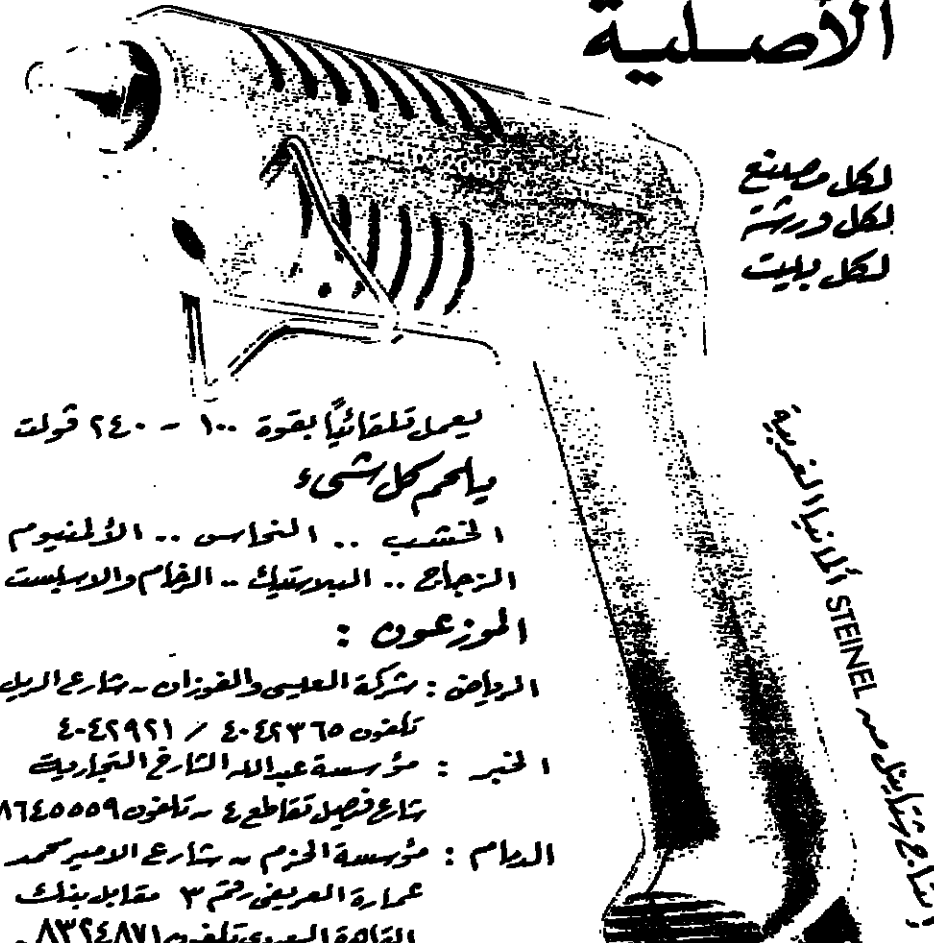 الأصلية
لكل مصنع
لكل ورشة
لكل بيت
يعمل تلقائيًا بقوة ١٠٠ - ٢٤٠ ڤولت
يلحم كل شىء
الخشب .. النحاس .. الألمنيوم
الزجاج .. البلاستيك .. الرخام والاسبست
الموزعون :
الرياض : شركة العليسى والفوزان - شارع الريل
تلفون ٤٠٤٢٣٦٥ / ٤٠٤٢٩٢١
الخبر : مؤسسة عبدالله الشارخ التجارية
شارع فيصل تقاطع ٤ - تلفون ٨٦٤٥٥٥٩
الدمام : مؤسسة الحزم - شارع الامير محمد
عمارة العريفى رقم ٣ مقابل بنك
القاهرة السعودى تلفون ٨٣٢٤٨٧١
انتاج شتاينل من STEINEL ألمانيا الغربية